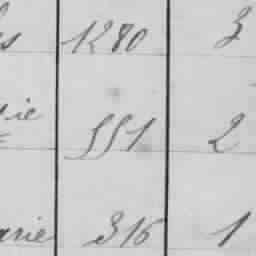 es 1280 3
ie 551 2
arie 316 1